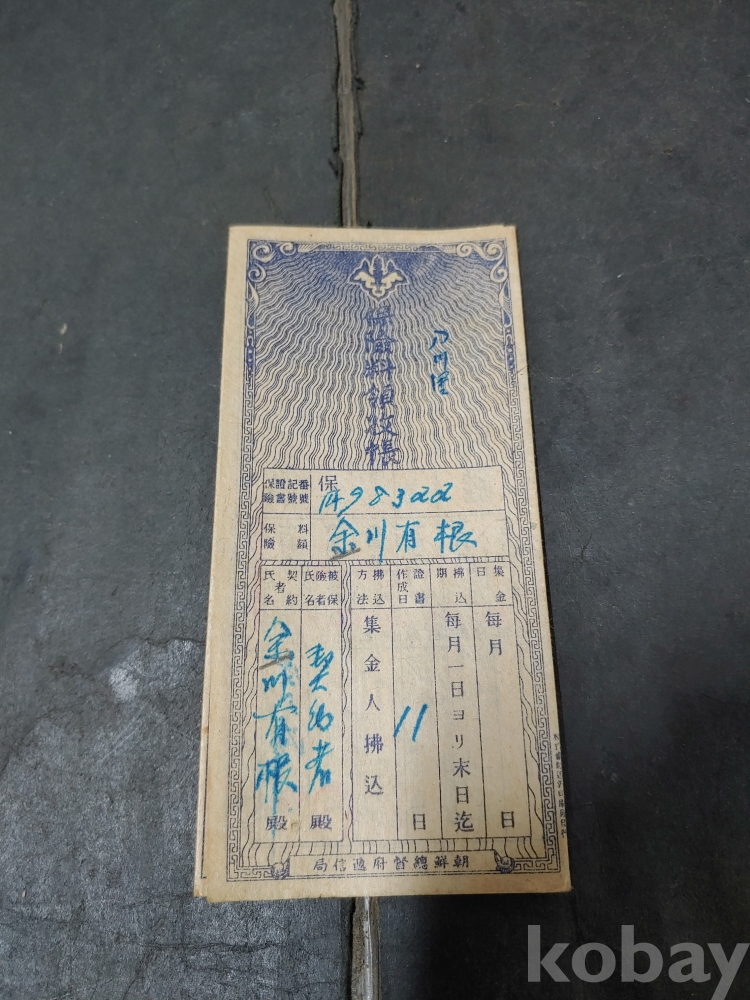 保險料領收帳
保險證書記號番號
保
1498322
保險料額
金川有根
集金日
每月
日
拂込期
每月一日ヨリ末日迄
證書作成日
11
日
拂込方法
集金人拂込
被保險者氏名
契約者
殿
契約者氏名
金川有根
殿
朝鮮總督府遞信局
kobay